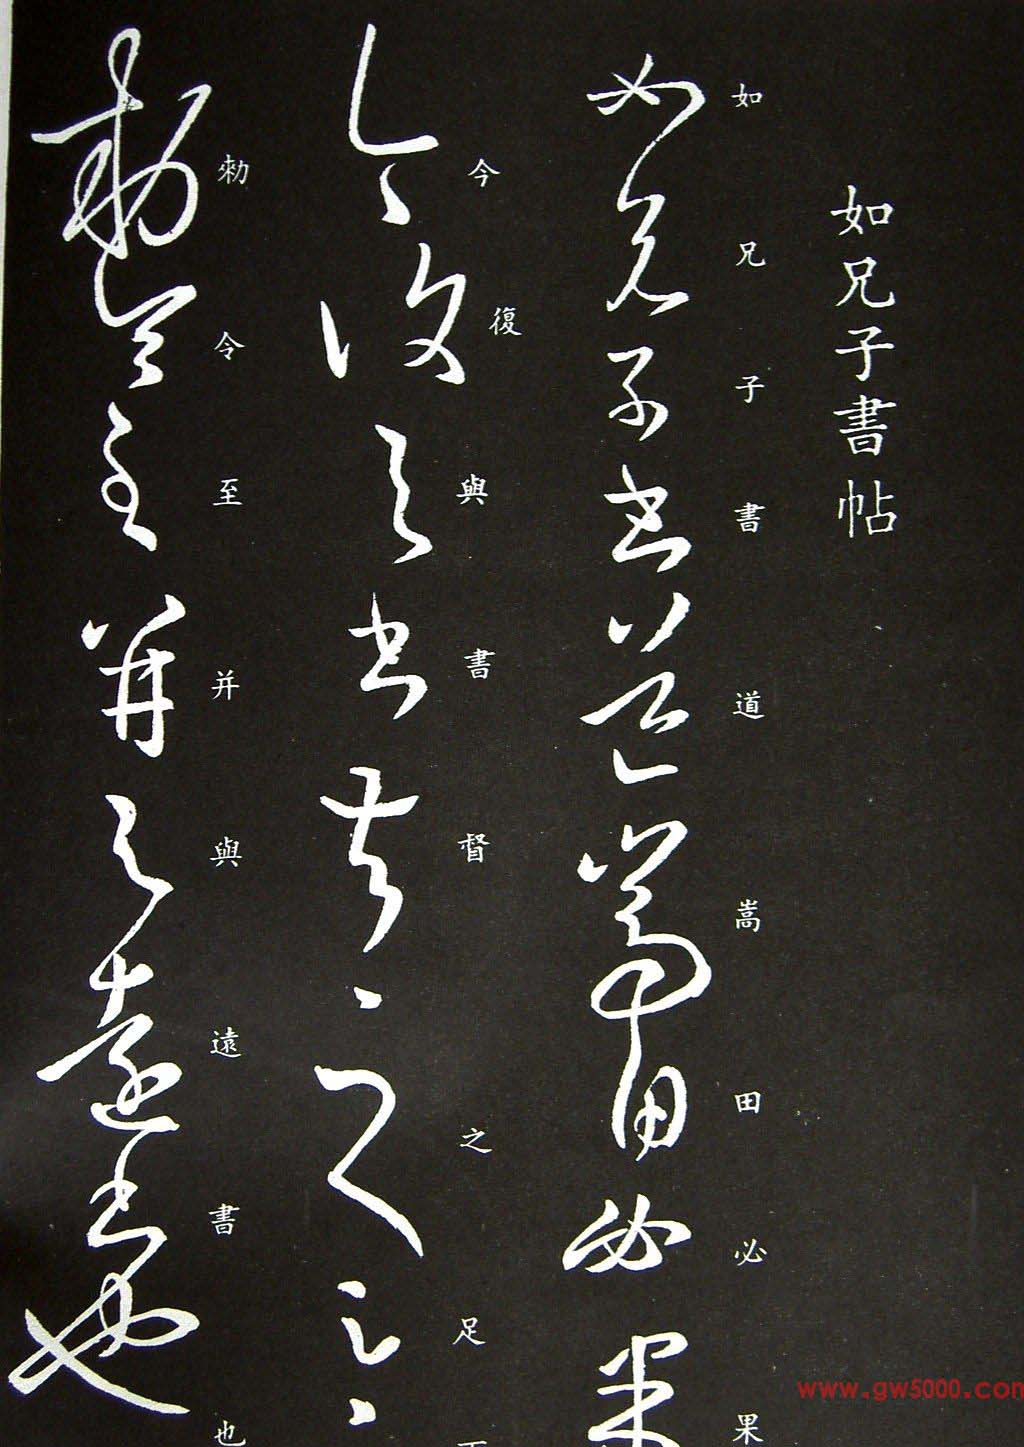 如兄子書帖
如兄子書道嵩田必果
今復與書督之足下
勑令至并與遠書也
www.gw5000.com